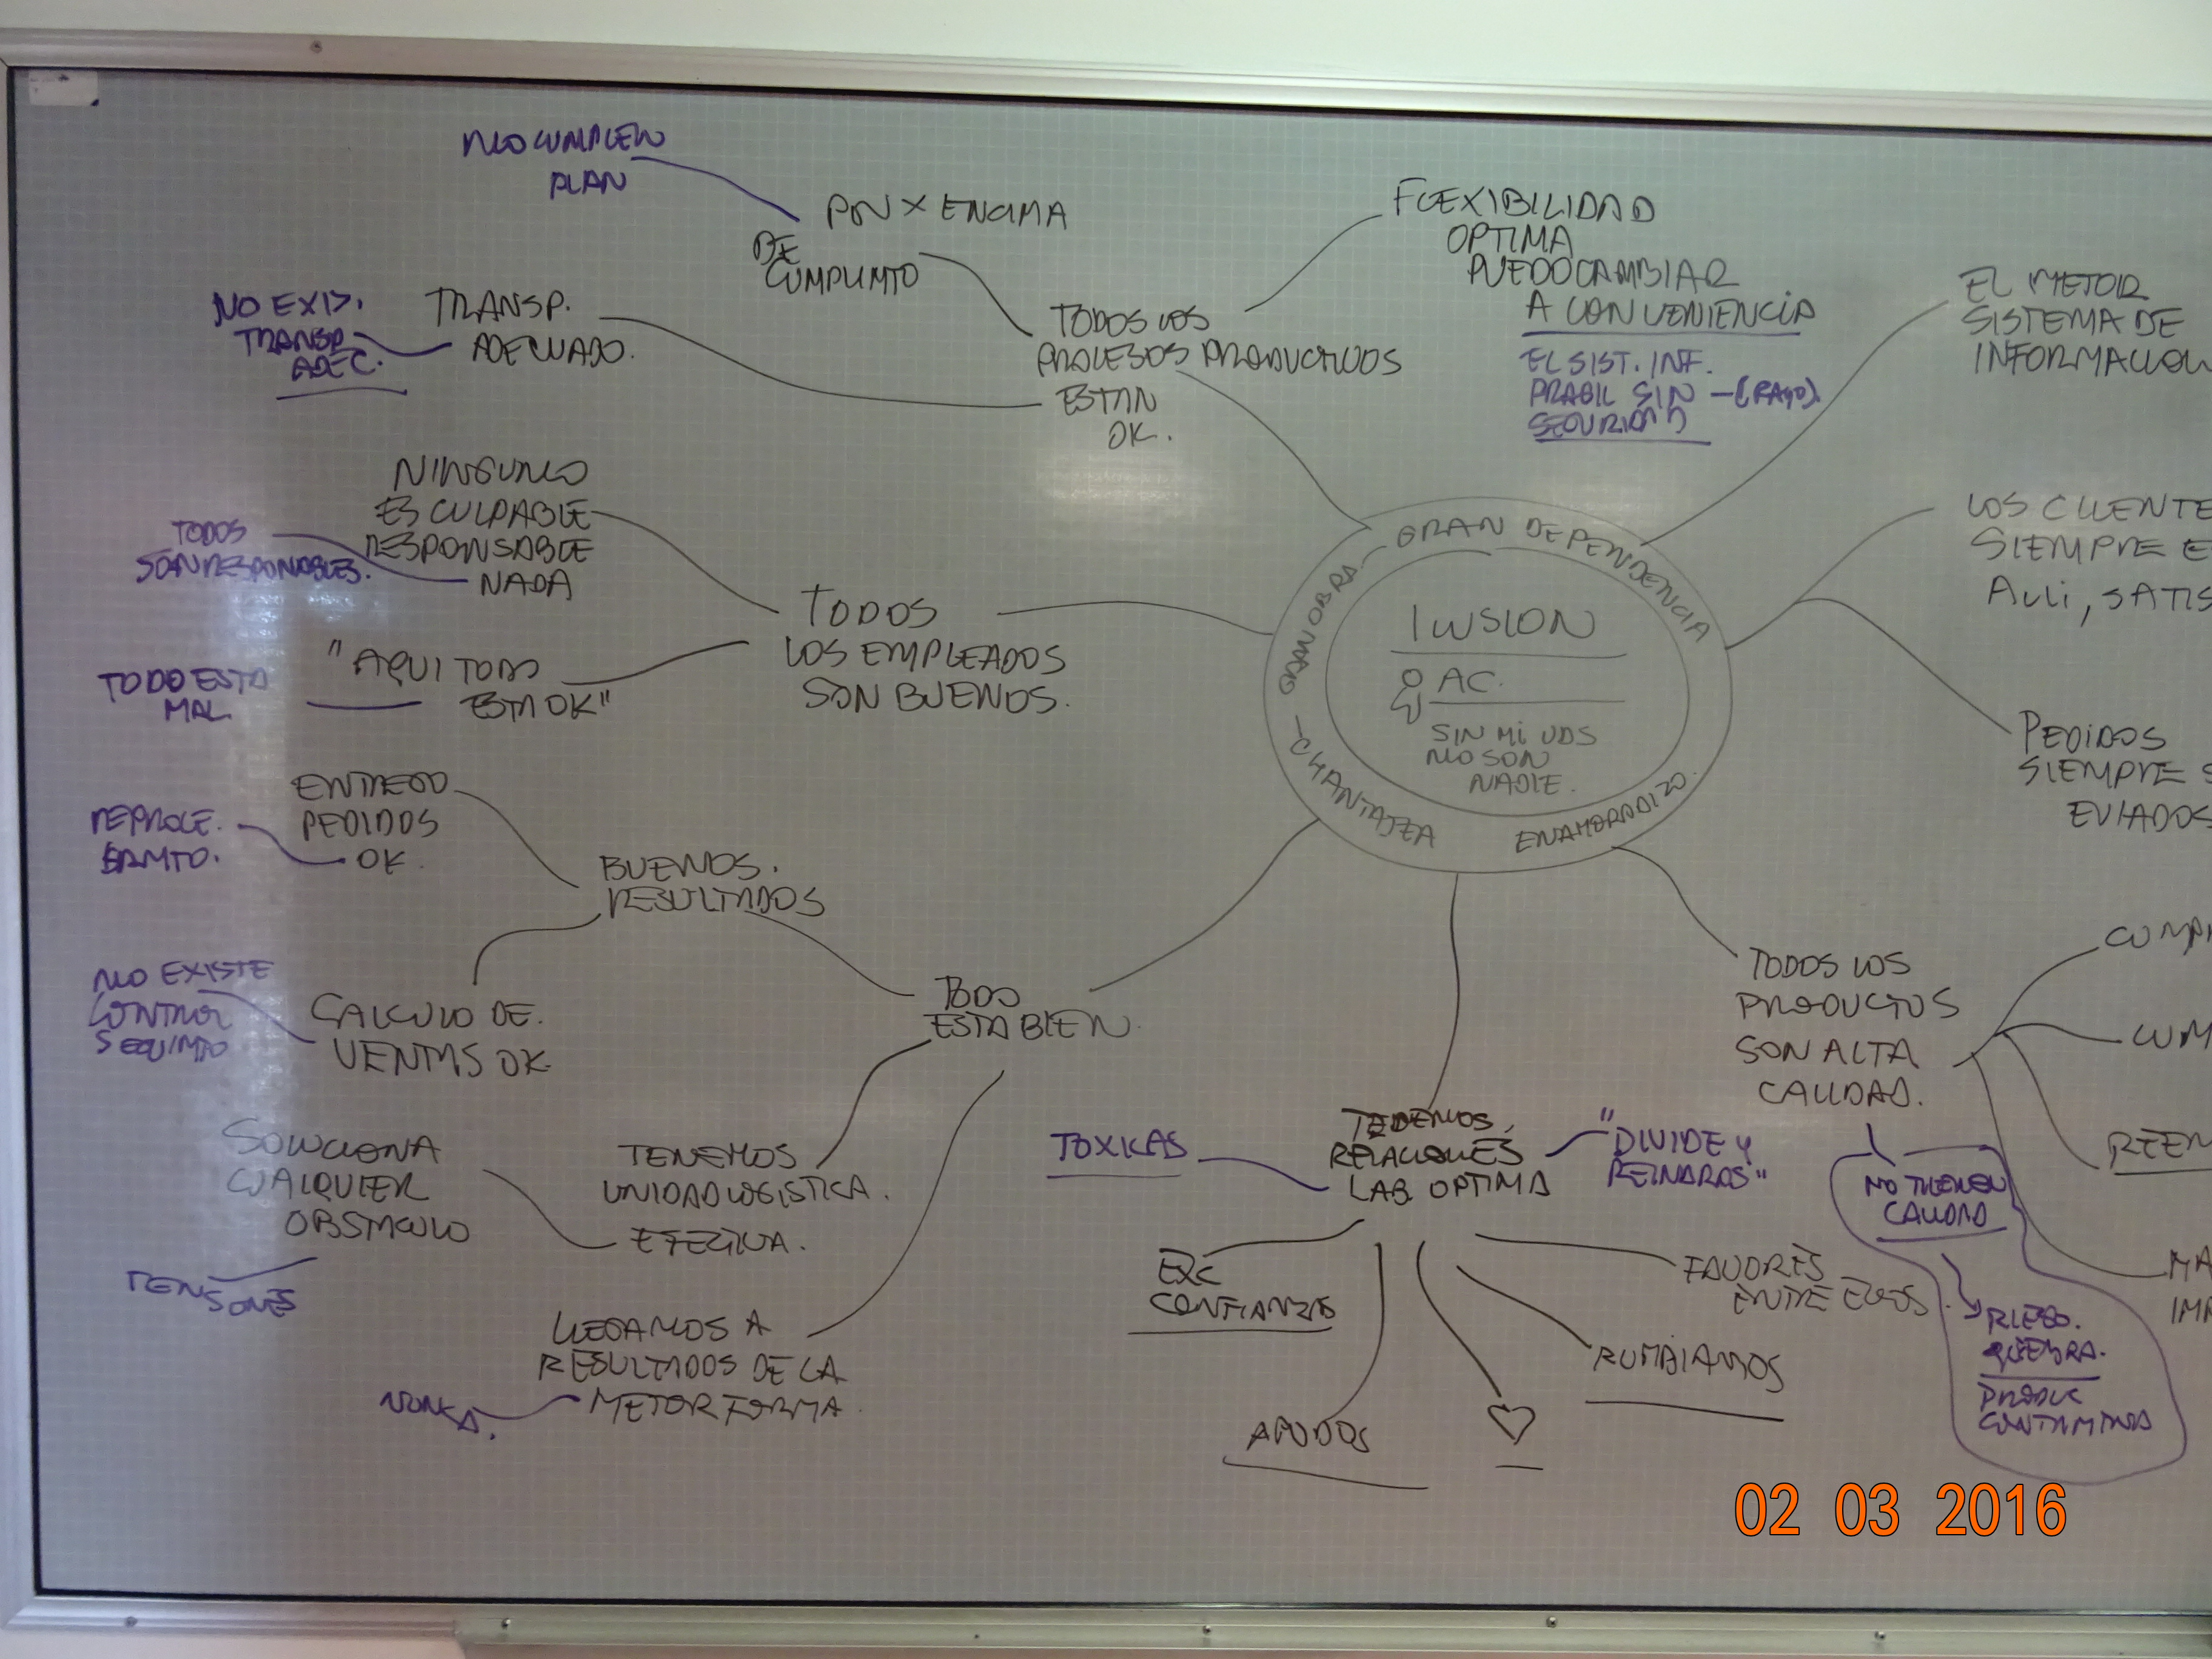 NO CUMPLEN
PLAN
PDN X ENCIMA
DE
CUMPLIMTO
NO EXIS.
TRANSP.
ADEC.
TRANSP.
ADECUADO.
TODOS LOS
PROCESOS PRODUCTIVOS
ESTAN
OK.
FLEXIBILIDAD
OPTIMA
PUEDO CAMBIAR
A CONVENIENCIA
EL SIST. INF.
FRAGIL SIN
SEGURIDAD
EL MEJOR
SISTEMA DE
INFORMACION
NINGUNO
ES CULPABLE
RESPONSABLE
NADA
TODOS
SON RESPONSABLES.
TODOS
LOS EMPLEADOS
SON BUENOS.
"AQUI TODO
ESTA OK"
TODO ESTA
MAL
GRAN OBRA - GRAN DEPENDENCIA
ENAMORADIZO
- CHANTAJEA
ILUSION
AC.
SIN MI UDS
NO SON
NADIE.
LOS CLIENTE
SIEMPRE E
SATIS
PEDIDOS
SIEMPRE S
EVIADOS
ENTREGO
PEDIDOS
OK.
REPROCE-
SAMTO.
BUENOS.
RESULTADOS
NO EXISTE
CONTROL
SEGUIMTO
CALCULO DE.
VENTAS OK.
TODO
ESTA BIEN.
SOLUCIONA
CUALQUIER
OBSTACULO
TENSIONES
TENEMOS
UNIDAD LOGISTICA.
EFECTIVA.
LLEGAMOS A
RESULTADOS DE LA
MEJOR FORMA.
NUNCA.
TOXICAS
TENEMOS
RELACIONES
LAB OPTIMA
"DIVIDE Y
REINARAS"
EXC
CONFIANZA
APODOS
RUMBIAMOS
FAVORES
ENTRE ELLOS.
TODOS LOS
PRODUCTOS
SON ALTA
CALIDAD.
NO TIENEN
CALIDAD
RIESGO.
QUIEBRA.
PRODUC
CONTAMINA
CUMP
CUM
REEM
MA
IMP
02 03 2016